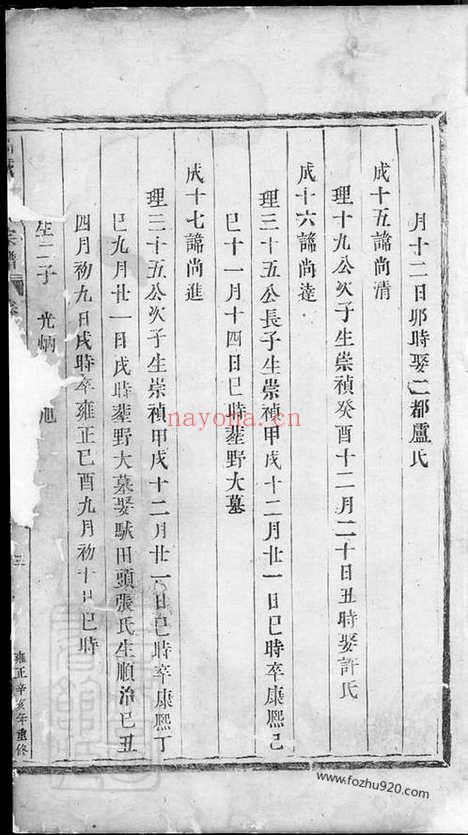 月十二日卯時娶二都盧氏
成十五諱尚清
理十九公次子生崇禎癸酉十二月二十日丑時娶許氏
成十六諱尚達
理三十五公長子生崇禎甲戌十二月廿一日巳時卒康熙己
巳十一月十四日巳時塟野大墓
成十七諱尚進
理三十五公次子生崇禎甲戌十二月廿一日巳時卒康熙丁
巳九月廿一日戌時塟野大墓娶 田頭張氏生順治己丑
四月初九日戌時卒雍正己酉九月初十日巳時
生二子 光炳 旭
宗譜
三
雍正辛亥年重修
nayona.cn
www.fozhu920.com